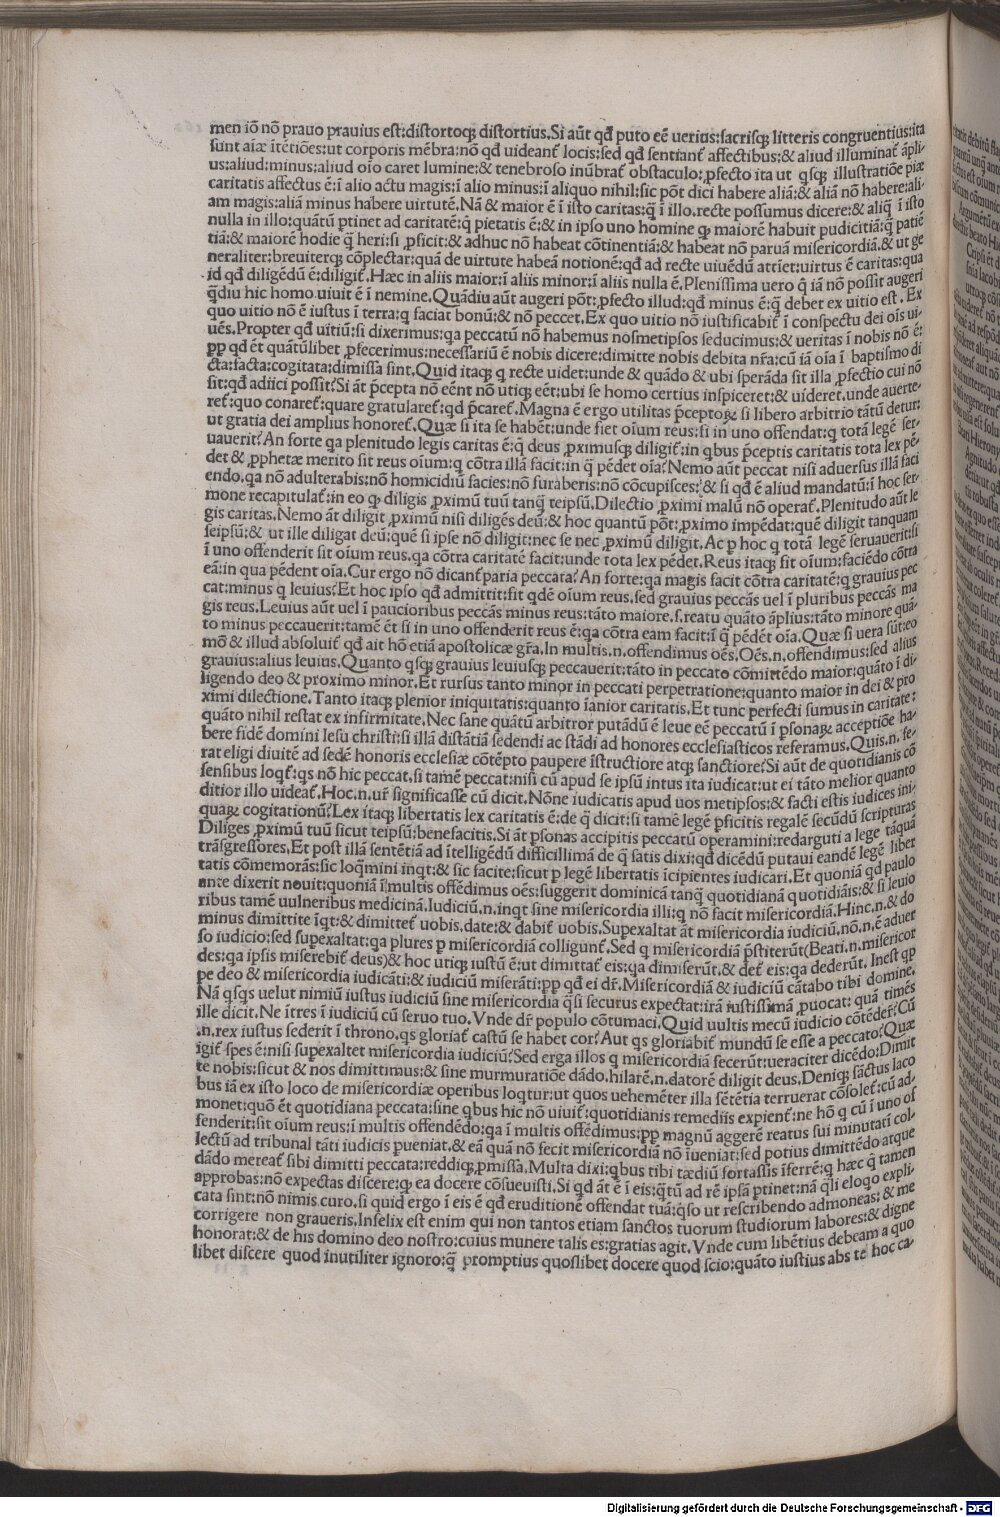 men iõ nõ prauo prauius est:distortoqꝫ distortius.Si aũt qđ puto eẽ uerius:sacrisqꝫ litteris congruentius:ita
sunt aiæ ĩtẽtiões:ut corporis mẽbra:nõ qđ uideant᷑ locis:sed qđ sentiant᷑ affectibus:& aliud illuminat᷑ ãpli/
us:aliud:minus:aliud oĩo caret lumine:& tenebroso inũbrat᷑ obstaculo:ꝓfecto ita ut qsqꝫ illustratiõe piæ
caritatis affectus ẽ:ĩ alio actu magis:ĩ alio minus:ĩ aliquo nihil:sic põt dici habere aliã:& aliã nõ habere:ali/
am magis:aliã minus habere uirtutẽ.Nã & maior ẽ ĩ isto caritas:q̃ ĩ illo.recte possumus dicere:& aliq̃ ĩ isto
nulla in illo:quãtũ ptinet ad caritatẽ:q̃ pietatis ẽ:& in ipso uno homine qꝙ maiorẽ habuit pudicitiã:q̃ patiẽ
tiã:& maiorẽ hodie q̃ heri:si ꝓficit:& adhuc nõ habeat cõtinentiã:& habeat nõ paruã misericordiã.& ut ge
neraliter:breuiterqꝫ cõplectar:quã de uirtute habeã notionẽ:qđ ad recte uiuẽdũ attĩet:uirtus ẽ caritas:qua
id qđ diligẽdũ ẽ:diligit᷑.Hæc in aliis maior:ĩ aliis minor:ĩ aliis nulla ẽ.Plenissima uero q̃ iã nõ possit augeri
q̃diu hic homo uiuit ẽ ĩ nemine.Quãdiu aũt augeri põt:ꝓfecto illud:qđ minus ẽ:q̃ debet ex uitio est. Ex
quo uitio nõ ẽ iustus ĩ terra:q faciat bonũ:& nõ peccet.Ex quo uitio nõ iustificabit᷑ ĩ conspectu dei oĩs ui/
uẽs.Propter qđ uitiũ:si dixerimus:qa peccatũ nõ habemus nosmetipsos seducimus:& ueritas ĩ nobis nõ ẽ:
ꝓp qđ ẽt quãtũlibet ꝓfecerimus:necessariũ ẽ nobis dicere:dimitte nobis debita nr̃a:cũ iã oĩa ĩ baptismo di
cta:facta:cogitata:dimissa sint.Quid itaqꝫ q recte uidet:unde & quãdo & ubi sperãda sit illa ꝓfectio cui nõ
sit:qđ adiici possit?Si ãt p̃cepta nõ eẽnt nõ utiqꝫ eẽt:ubi se homo certius inspiceret:& uideret.unde auerte/
ret᷑:quo conaret᷑:quare gratularet᷑:qđ p̃caret᷑.Magna ẽ ergo utilitas p̃ceptoꝝ si libero arbitrio tãtũ detur:
ut gratia dei amplius honoret᷑.Quæ si ita se habẽt:unde fiet oĩum reus:si in uno offendat:q totã legẽ ser/
uauerit?An forte qa plenitudo legis caritas ẽ:q̃ deus ꝓximusqꝫ diligit᷑:in qbus p̃ceptis caritatis tota lex pẽ/
det & ꝓphetæ merito fit reus oĩum:q cõtra illã facit:in q̃ pẽdet oĩa?Nemo aũt peccat nisi aduersus illã faci
endo.qa nõ adulterabis:nõ homicidiũ facies:nõ furaberis:nõ cõcupisces:& si qđ ẽ aliud mandatũ:ĩ hoc ser/
mone recapitulat᷑:in eo qꝙ diligis ꝓximũ tuũ tanq̃ teipsũ.Dilectio ꝓximi malũ nõ operat᷑.Plenitudo aũt le
gis caritas.Nemo ãt diligit ꝓximũ nisi diligẽs deũ:& hoc quantũ põt:ꝓximo impẽdat:quẽ diligit tanquam
seipsũ:& ut ille diligat deũ:quẽ si ipse nõ diligit:nec se nec ꝓximũ diligit.Ac p hoc q totã legẽ seruauerit:si
ĩ uno offenderit fit oĩum reus.qa cõtra caritatẽ facit:unde tota lex pẽdet.Reus itaqꝫ fit oĩum:faciẽdo cõtra
eã:in qua pẽdent oĩa.Cur ergo nõ dicant᷑ paria peccata?An forte:qa magis facit cõtra caritatẽ:q grauius pec
cat:minus q leuius?Et hoc ipso qđ admittit:fit qdẽ oĩum reus.sed grauius peccãs uel ĩ pluribus peccãs ma
gis reus.Leuius aũt uel ĩ paucioribus peccãs minus reus:tãto maiore.s.reatu quãto ãplius:tãto minore quã/
to minus peccauerit:tamẽ ẽt si in uno offenderit reus ẽ:qa cõtra eam facit:ĩ q̃ pẽdẽt oĩa.Quæ si uera sũt:eo
mõ & illud absoluit᷑ qđ ait hõ etiã apostolicæ gr̃a.In multis.n.offendimus oẽs.Oẽs.n.offendimus:sed alius
grauius:alius leuius.Quanto qsqꝫ grauius leuiusqꝫ peccauerit:tãto in peccato cõmittẽdo maior:quãto ĩ di/
ligendo deo & proximo minor.Et rursus tanto minor in peccati perpetratione:quanto maior in dei & pro
ximi dilectione.Tanto itaqꝫ plenior iniquitatis:quanto ĩanior caritatis.Et tunc perfecti sumus in caritate:
quãto nihil restat ex infirmitate.Nec sane quãtũ arbitror putãdũ ẽ leue eẽ peccatũ ĩ psonaꝝ acceptiõe ha/
bere fidẽ domini Iesu christi:si illã distãtiã sedendi ac stãdi ad honores ecclesiasticos referamus.Quis.n.fe/
rat eligi diuitẽ ad sedẽ honoris ecclesiæ cõtẽpto paupere ĩstructiore atqꝫ sanctiore?Si aũt de quotidianis cõ
sensibus loqt᷑:qs nõ hic peccat.si tamẽ peccat:nisi cũ apud se ipsũ intus ita iudicat:ut ei tãto melior quanto
ditior illo uideat᷑.Hoc.n.ur̃ significasse cũ dicit.Nõne iudicatis apud uos metipsos:& facti estis iudices ini/
quaꝝ cogitationũ?Lex itaqꝫ libertatis lex caritatis ẽ:de q̃ dicit:si tamẽ legẽ pficitis regalẽ secũdũ scripturas
Diliges ꝓximũ tuũ sicut teipsũ:benefacitis.Si ãt psonas accipitis peccatũ operamini:redarguti a lege tãquã
trãsgressores.Et post illã sentẽtiã ad ĩtelligẽdũ difficillimã de q̃ satis dixi:qđ dicẽdũ putaui eandẽ legẽ liber
tatis cõmemorãs:sic loqmini inqt:& sic facite:sicut p legẽ libertatis ĩcipientes iudicari.Et quoniã qđ paulo
ante dixerit nouit:quoniã ĩ multis offẽdimus oẽs:suggerit dominicã tanq̃ quotidianã quotidiãis:& si leuio
ribus tamẽ uulneribus medicinã.Iudiciũ.n.inqt sine misericordia illi:q nõ facit misericordiã.Hinc.n.& do
minus dimittite ĩqt:& dimittet᷑ uobis.date:& dabit᷑ uobis.Supexaltat ãt misericordia iudiciũ.nõ.n.ẽ aduer
so iudicio:sed supexaltat:qa plures p misericordiã colligunt᷑.Sed q misericordiã p̃stiterũt(Beati.n.misericor
des:qa ipsis miserebit᷑ deus)& hoc utiqꝫ iustũ ẽ:ut dimittat᷑ eis:qa dimiserũt.& det᷑ eis:qa dederũt. Inest qp
pe deo & misericordia iudicãti:& iudiciũ miserãti:ꝓp qđ ei dr̃.Misericordiã & iudiciũ cãtabo tibi domine.
Nã qsqs uelut nimiũ iustus iudiciũ sine misericordia q̃si securus expectat:irã iustissimã ꝓuocat: quã timẽs
ille dicit.Ne ĩtres ĩ iudiciũ cũ seruo tuo.Vnde dr̃ populo cõtumaci.Quid uultis mecũ iudicio cõtẽder̃?Cũ
.n.rex iustus sederit ĩ throno.qs gloriat᷑ castũ se habet cor?Aut qs gloriabit᷑ mundũ se esse a peccato?Quæ
igit᷑ spes ẽ:nisi supexaltet misericordia iudiciũ?Sed erga illos q misericordiã fecerũt:ueraciter dicẽdo:Dimit
te nobis:sicut & nos dimittimus:& sine murmuratiõe dãdo.hilarẽ.n.datorẽ diligit deus.Deniqꝫ sãctus Iaco
bus iã ex isto loco de misericordiæ operibus loqtur:ut quos uehemẽter illa sẽtẽtia terruerat cõsolet᷑:cũ ad/
monet:quõ ẽt quotidiana peccata:sine qbus hic nõ uiuit᷑:quotidianis remediis expient᷑:ne hõ q cũ ĩ uno of
fenderit:fit oĩum reus:ĩ multis offendẽdo:qa ĩ multis offẽdimus:ꝓp magnũ aggerẽ reatus sui minutati col/
lectũ ad tribunal tãti iudicis pueniat.& eã quã nõ fecit misericordiã nõ ĩueniat:sed potius dimittẽdo atque
dãdo mereat᷑ sibi dimitti peccata:reddiqꝫ pmissa.Multa dixi:qbus tibi tædiũ fortassis ĩferrẽ:q hæc q̃ tamen
approbas:nõ expectas discere:qꝙ ea docere cõsueuisti.Si qđ ãt ẽ ĩ eis:q̃tũ ad rẽ ipsã ptinet:nã q̃li elogo expli/
cata sint:nõ nimis curo.si quid ergo ĩ eis ẽ qđ eruditionẽ offendat tuã:q̃so ut rescribendo admoneas:& me
corrigere non graueris.Infelix est enim qui non tantos etiam sanctos tuorum studiorum labores:& digne
honorat:& de his domino deo nostro:cuius munere talis es:gratias agit.Vnde cum libẽtius debeam a quo
libet discere quod inutiliter ignoro:q̃ promptius quoslibet docere quod scio:quãto iustius abs te hoc ca/
Digitalisierung gefördert durch die Deutsche Forschungsgemeinschaft - DFG